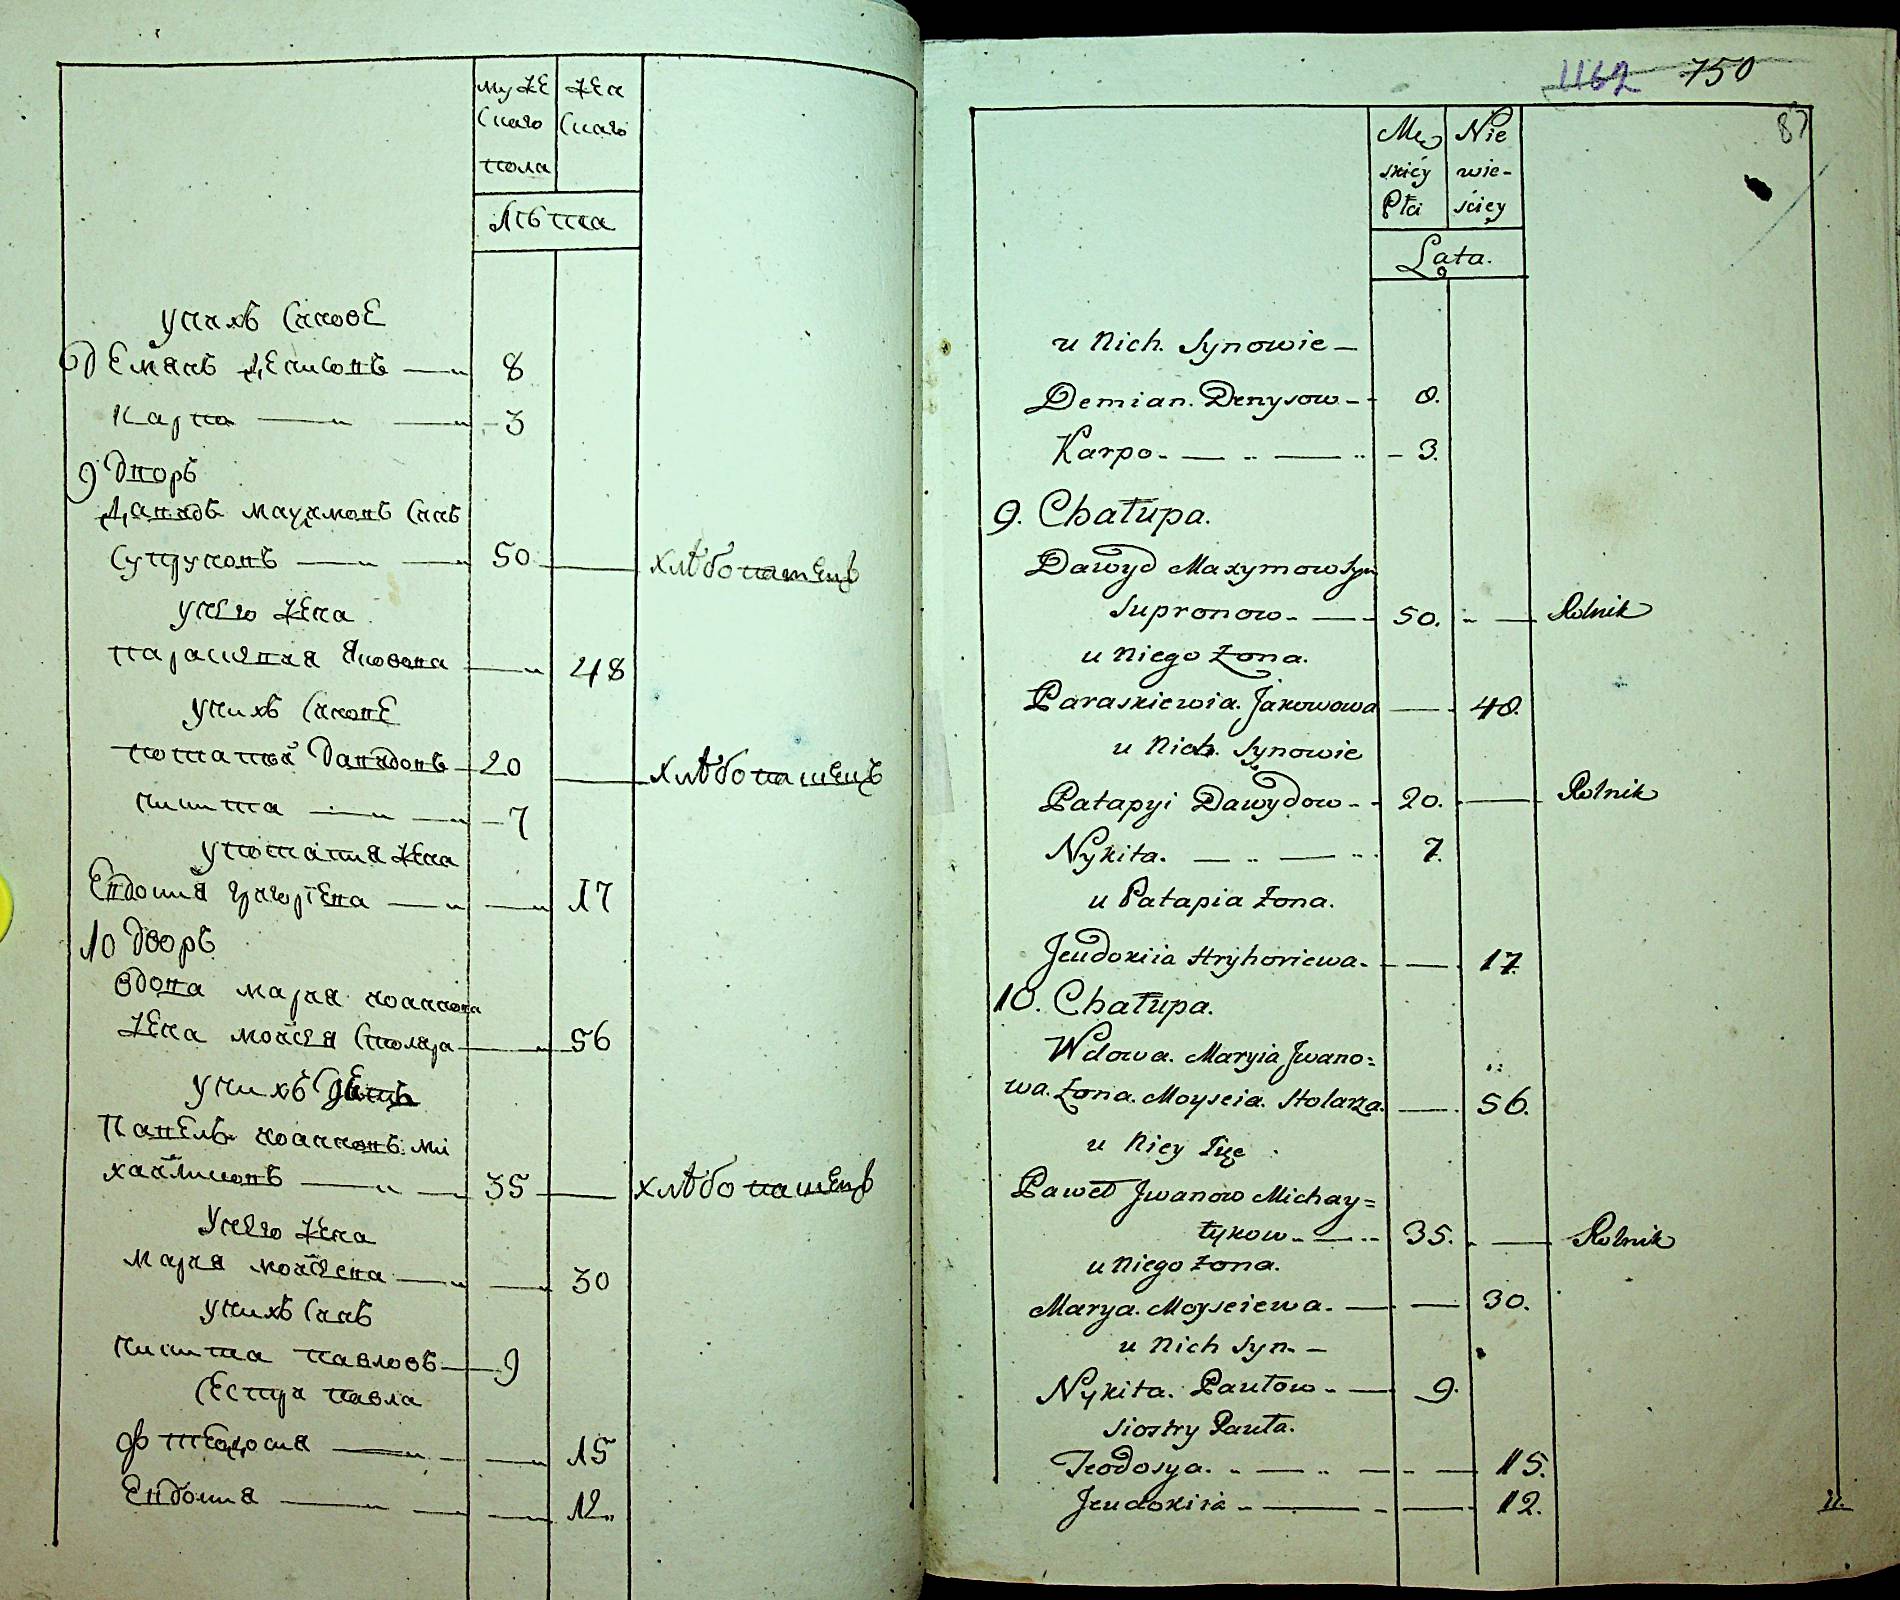 муже
скаго
пола
жен
скаго
лѣта
у нихъ сынове
Демянъ Денисовъ 8
Карпа 3
9 дворъ
Давыдъ Маѯимовъ сынъ
Супруновъ 50 хлѣбопашецъ
у него жена
Параскевия Яковова 48
у нихъ сынове
Потапий Давыдовъ 20 хлѣбопашецъ
Никита 7
у Потапия жена
Евдокия Григориева 17
10 дворъ
вдова Мария Иоаннова
жена Моисея Столяра 56
у нихъ
Павелъ Иоанновъ Ми
хайликовъ 35 хлѣбопашецъ
у него жена
Мария Моисеева 30
у нихъ сынъ
Никита Павловъ 9
сестры Павла
Фтеодосия 15
Евдокия 12
1162 750
87
Mę
skiey
Płci
Nie
wie-
ściey
Lata.
u Nich. Synowie
Demian. Denysow 8.
Karpo 3.
9. Chałupa.
Dawyd Maxymow Syn
Supronow 50. Rolnik
u Niego Żona.
Paraskiewia. Jakowowa 48.
u Nich. Synowie
Patapyi Dawydow 20. Rolnik
Nykita. 7.
u Patapia Żona.
Jeudokiia Hryhoriewa 17.
10. Chałupa.
Wdowa. Maryia Jwano=
wa. Żona. Moyseia. Stolarza. 56.
u Niey
Paweł Jwanow Michay=
łykow 35. Rolnik
u Niego Żona.
Marya. Moyseiewa. 30.
u Nich Syn.
Nykita. Paułow 9.
Siostry Pauła.
Teodosya. 15.
Jeudokiia 12.